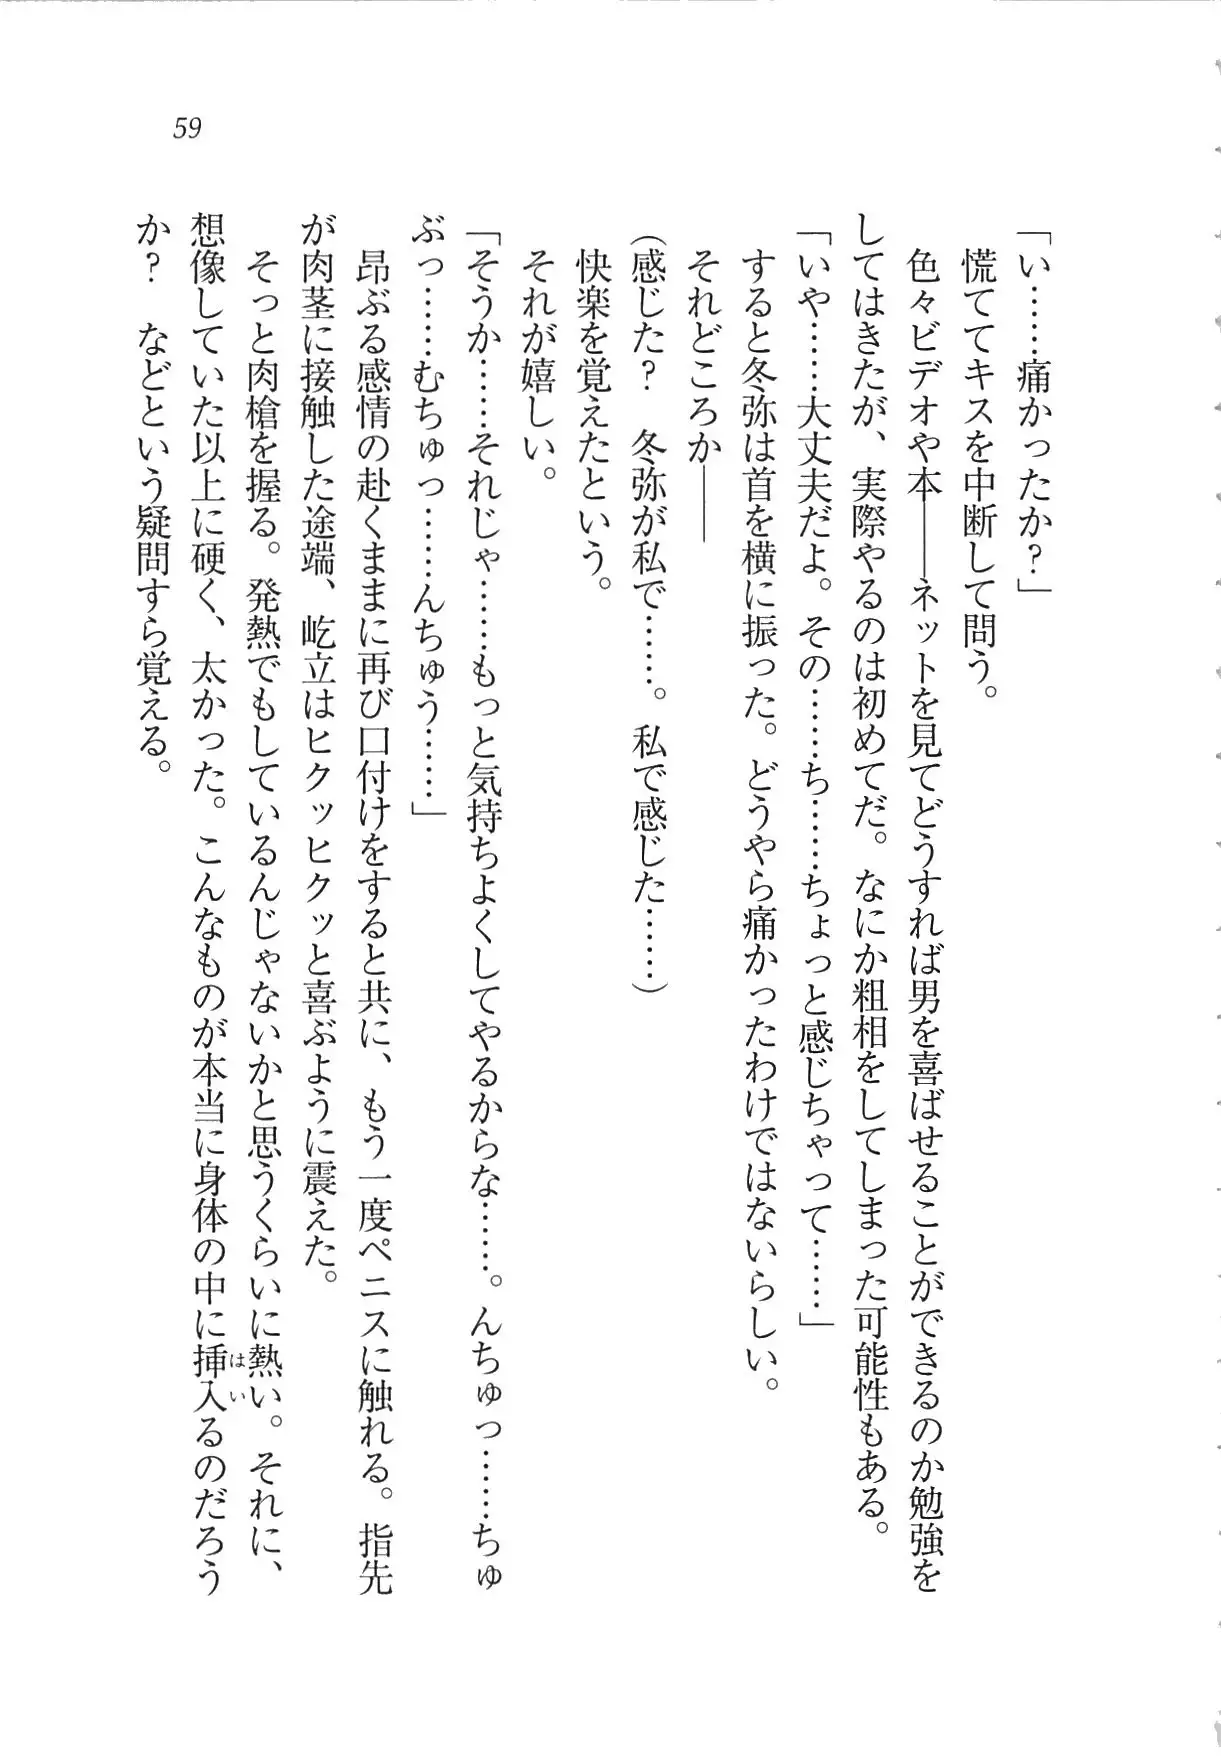 59
「い……痛かったか？」
慌ててキスを中断して問う。
色々ビデオや本――ネットを見てどうすれば男を喜ばせることができるのか勉強を
してはきたが、実際やるのは初めてだ。なにか粗相をしてしまった可能性もある。
「いや……大丈夫だよ。その……ち……ちょっと感じちゃって……」
すると冬弥は首を横に振った。どうやら痛かったわけではないらしい。
それどころか――
（感じた？　冬弥が私で……。私で感じた……）
快楽を覚えたという。
それが嬉しい。
「そうか……それじゃ……もっと気持ちよくしてやるからな……。んちゅっ……ちゅ
ぶっ……むちゅっ……んちゅう……」
昂ぶる感情の赴くままに再び口付けをすると共に、もう一度ペニスに触れる。指先
が肉茎に接触した途端、屹立はヒクッヒクッと喜ぶように震えた。
そっと肉槍を握る。発熱でもしているんじゃないかと思うくらいに熱い。それに、
想像していた以上に硬く、太かった。こんなものが本当に身体の中に挿入るのだろう
はい
か？　などという疑問すら覚える。